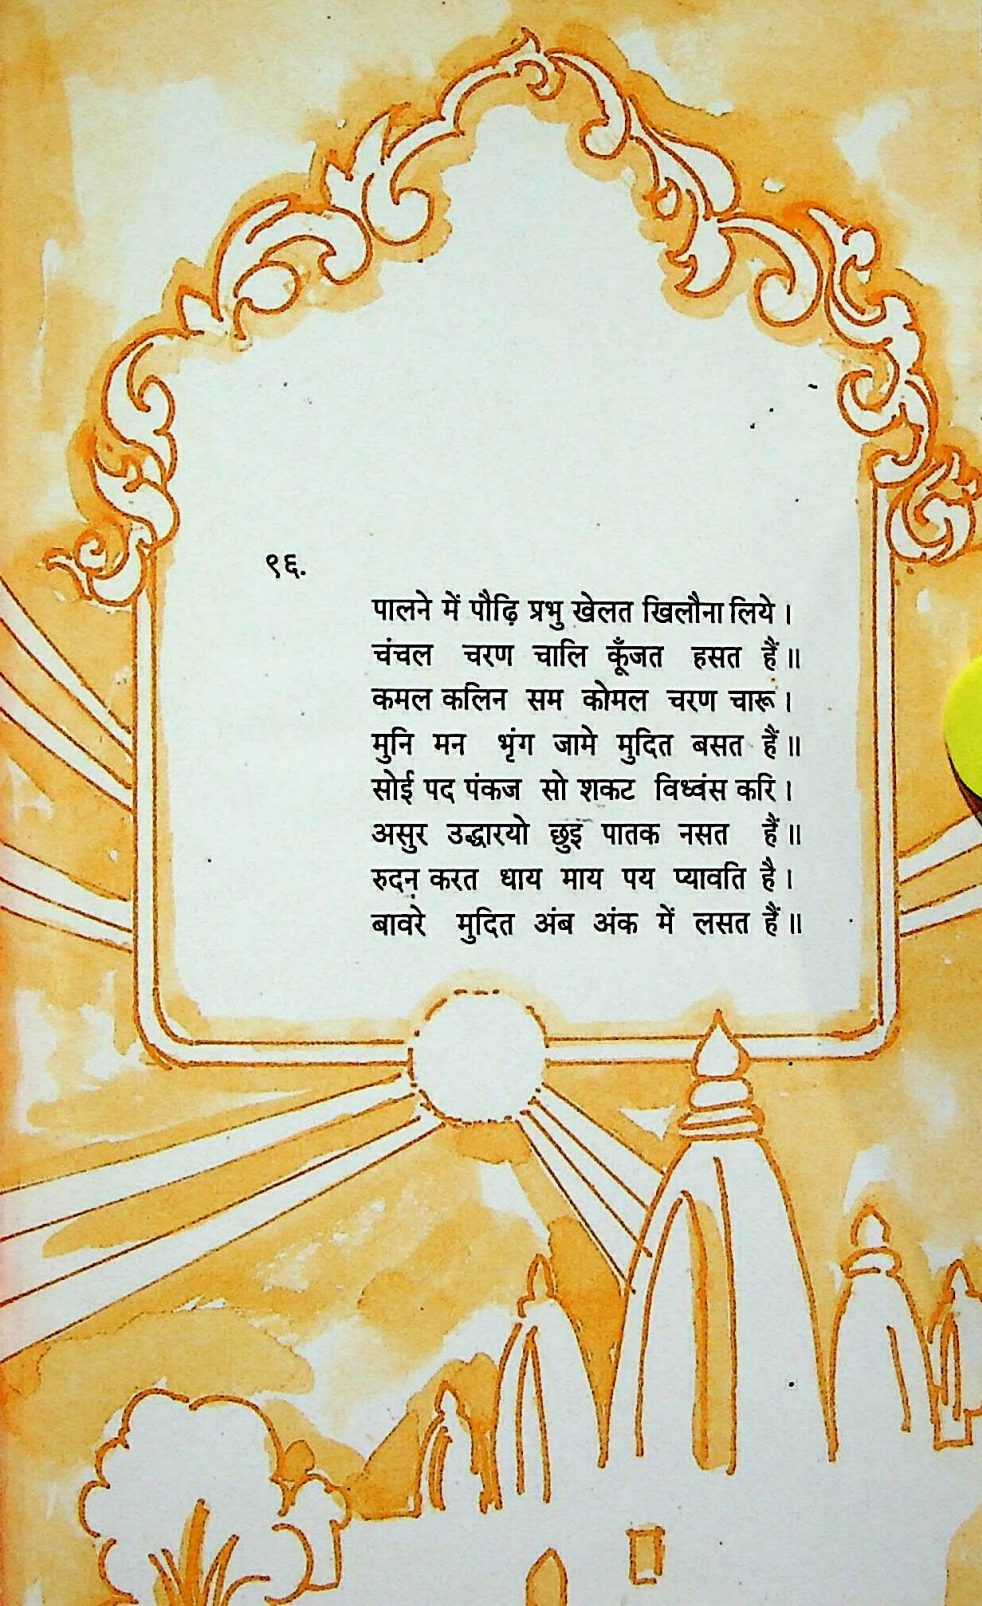 ९६.
पालने में पौढ़ि प्रभु खेलत खिलौना लिये ।
चंचल चरण चालि कूँजत हसत हैं ॥
कमल कलिन सम कोमल चरण चारू ।
मुनि मन भृंग जामे मुदित बसत हैं ॥
सोई पद पंकज सो शकट विध्वंस करि ।
असुर उद्धारयो छुइ पातक नसत हैं ॥
रुदन करत धाय माय पय प्यावति है ।
बावरे मुदित अंब अंक में लसत हैं ॥